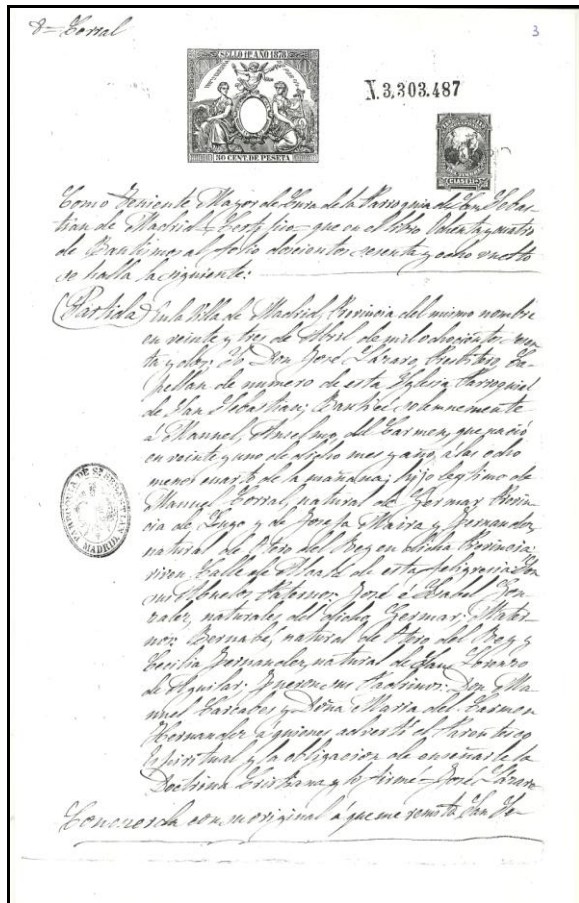 8= Corral
3
SELLO 11º AÑO 1878
50 CENT. DE PESETA
N.3,303.487
CLASE 11ª
Como Teniente Mayor de Cura de la Parroquia de San Sebas-
tian de Madrid = Certifico = que en el libro Ochenta y cuatro
de Bautismos al folio doscientos sesenta y ocho vuelto
se halla la siguiente:
(Partida) En la Villa de Madrid, Provincia del mismo nombre
en veinte y tres de Abril de mil ochocientos
ta y dos; Yo Don José Lázaro, Presbitero, Ca-
pellan de numero de esta Iglesia Parroquial
de San Sebastian; Bauticé solemnemente
á Manuel, Anselmo, del Carmen, que nació
en veinte y uno de dicho mes y año, á las ocho
menos cuarto de la mañana; hijo legitimo de
Manuel Corral, natural de Germar Provin-
cia de Lugo y de Josefa Maira y Fernandez
natural de Otero del Rey en dicha Provincia;
viven Calle de Alcalá de esta feligresia: Son
sus Abuelos, Paternos José é Isabel Gon-
zalez, naturales del dicho Germar; Mater-
nos: Bernabé, natural de Otero del Rey y
Cecilia Fernandez, natural de San Lorenzo
de Aguilar: fueron sus Padrinos: Don Ma-
nuel Carcabos y Doña Maria del Carmen
Hernandez á quienes adverti el Parentesco
Espiritual y la obligacion de enseñarle la
Doctrina Cristiana y lo firme = José Lázaro
Concuerda con su original á que me remito San Se-
PARROQUIA DE Sn SEBASTIAN
MADRID